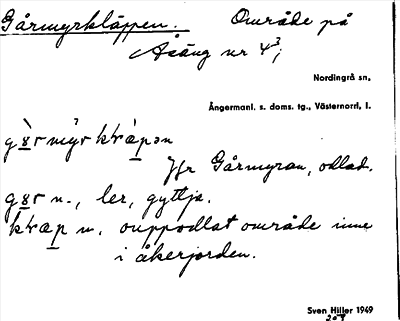 Gårmyrkläppen. Område på
Åsäng nr 4³;
Nordingrå sn,
Ångermanl. s. doms. tg., Västernorrl, l.
Jfr Gårmyran, odlad.
n., ler, gyttja.
m. ouppodlat område inne
i åkerjorden.
Sven Hiller 1949